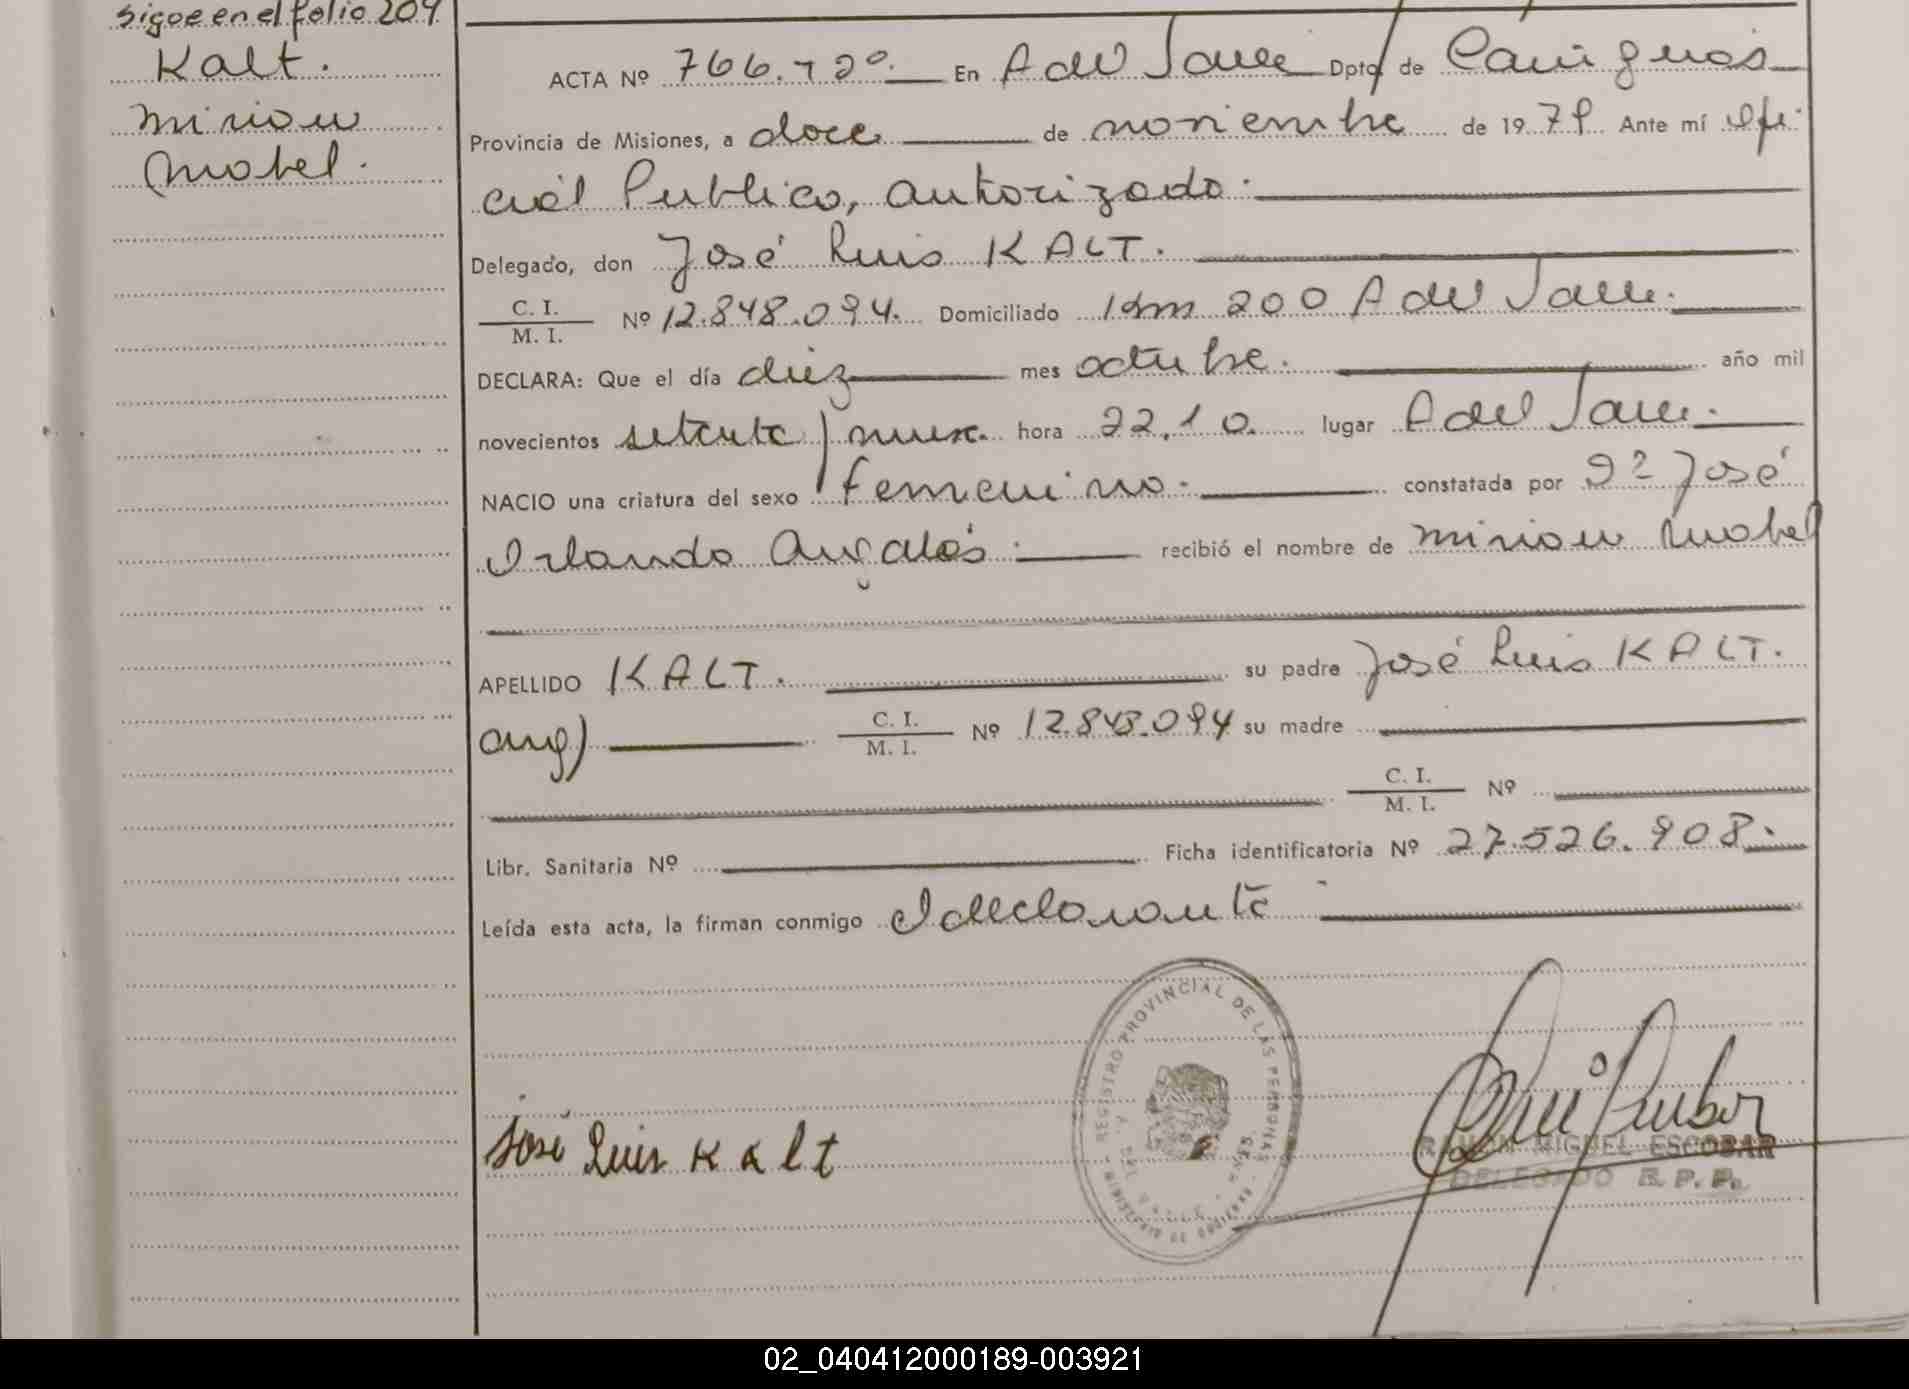 sigue en el folio 204
Kalt.
Miriam
Mabel.
ACTA Nº 766.-2º.- En A del Valle Dpto de Cainguás
Provincia de Misiones, a doce de noviembre de 1979. Ante mí Ofi-
cial Publico, autorizado.
Delegado, don José Luis KALT.
C. I.
M. I. Nº 12.848.094. Domiciliado Km 200 A del Valle.
DECLARA: Que el día diez mes octubre. año mil
novecientos setenta/nueve. hora 22,10. lugar A del Valle.
NACIO una criatura del sexo femenino. constatada por José
Orlando recibió el nombre de Miriam Mabel
APELLIDO KALT. su padre José Luis KALT.
arg) C. I.
M. I. Nº 12.848.094 su madre
C. I.
M. I. Nº
Libr. Sanitaria Nº Ficha identificatoria Nº 27.526.908.
Leída esta acta, la firman conmigo el declarante
REGISTRO PROVINCIAL DE LAS PERSONAS
José Luis Kalt
RAMON MIGUEL ESCOBAR
DELEGADO R. P. P.
02_040412000189-003921